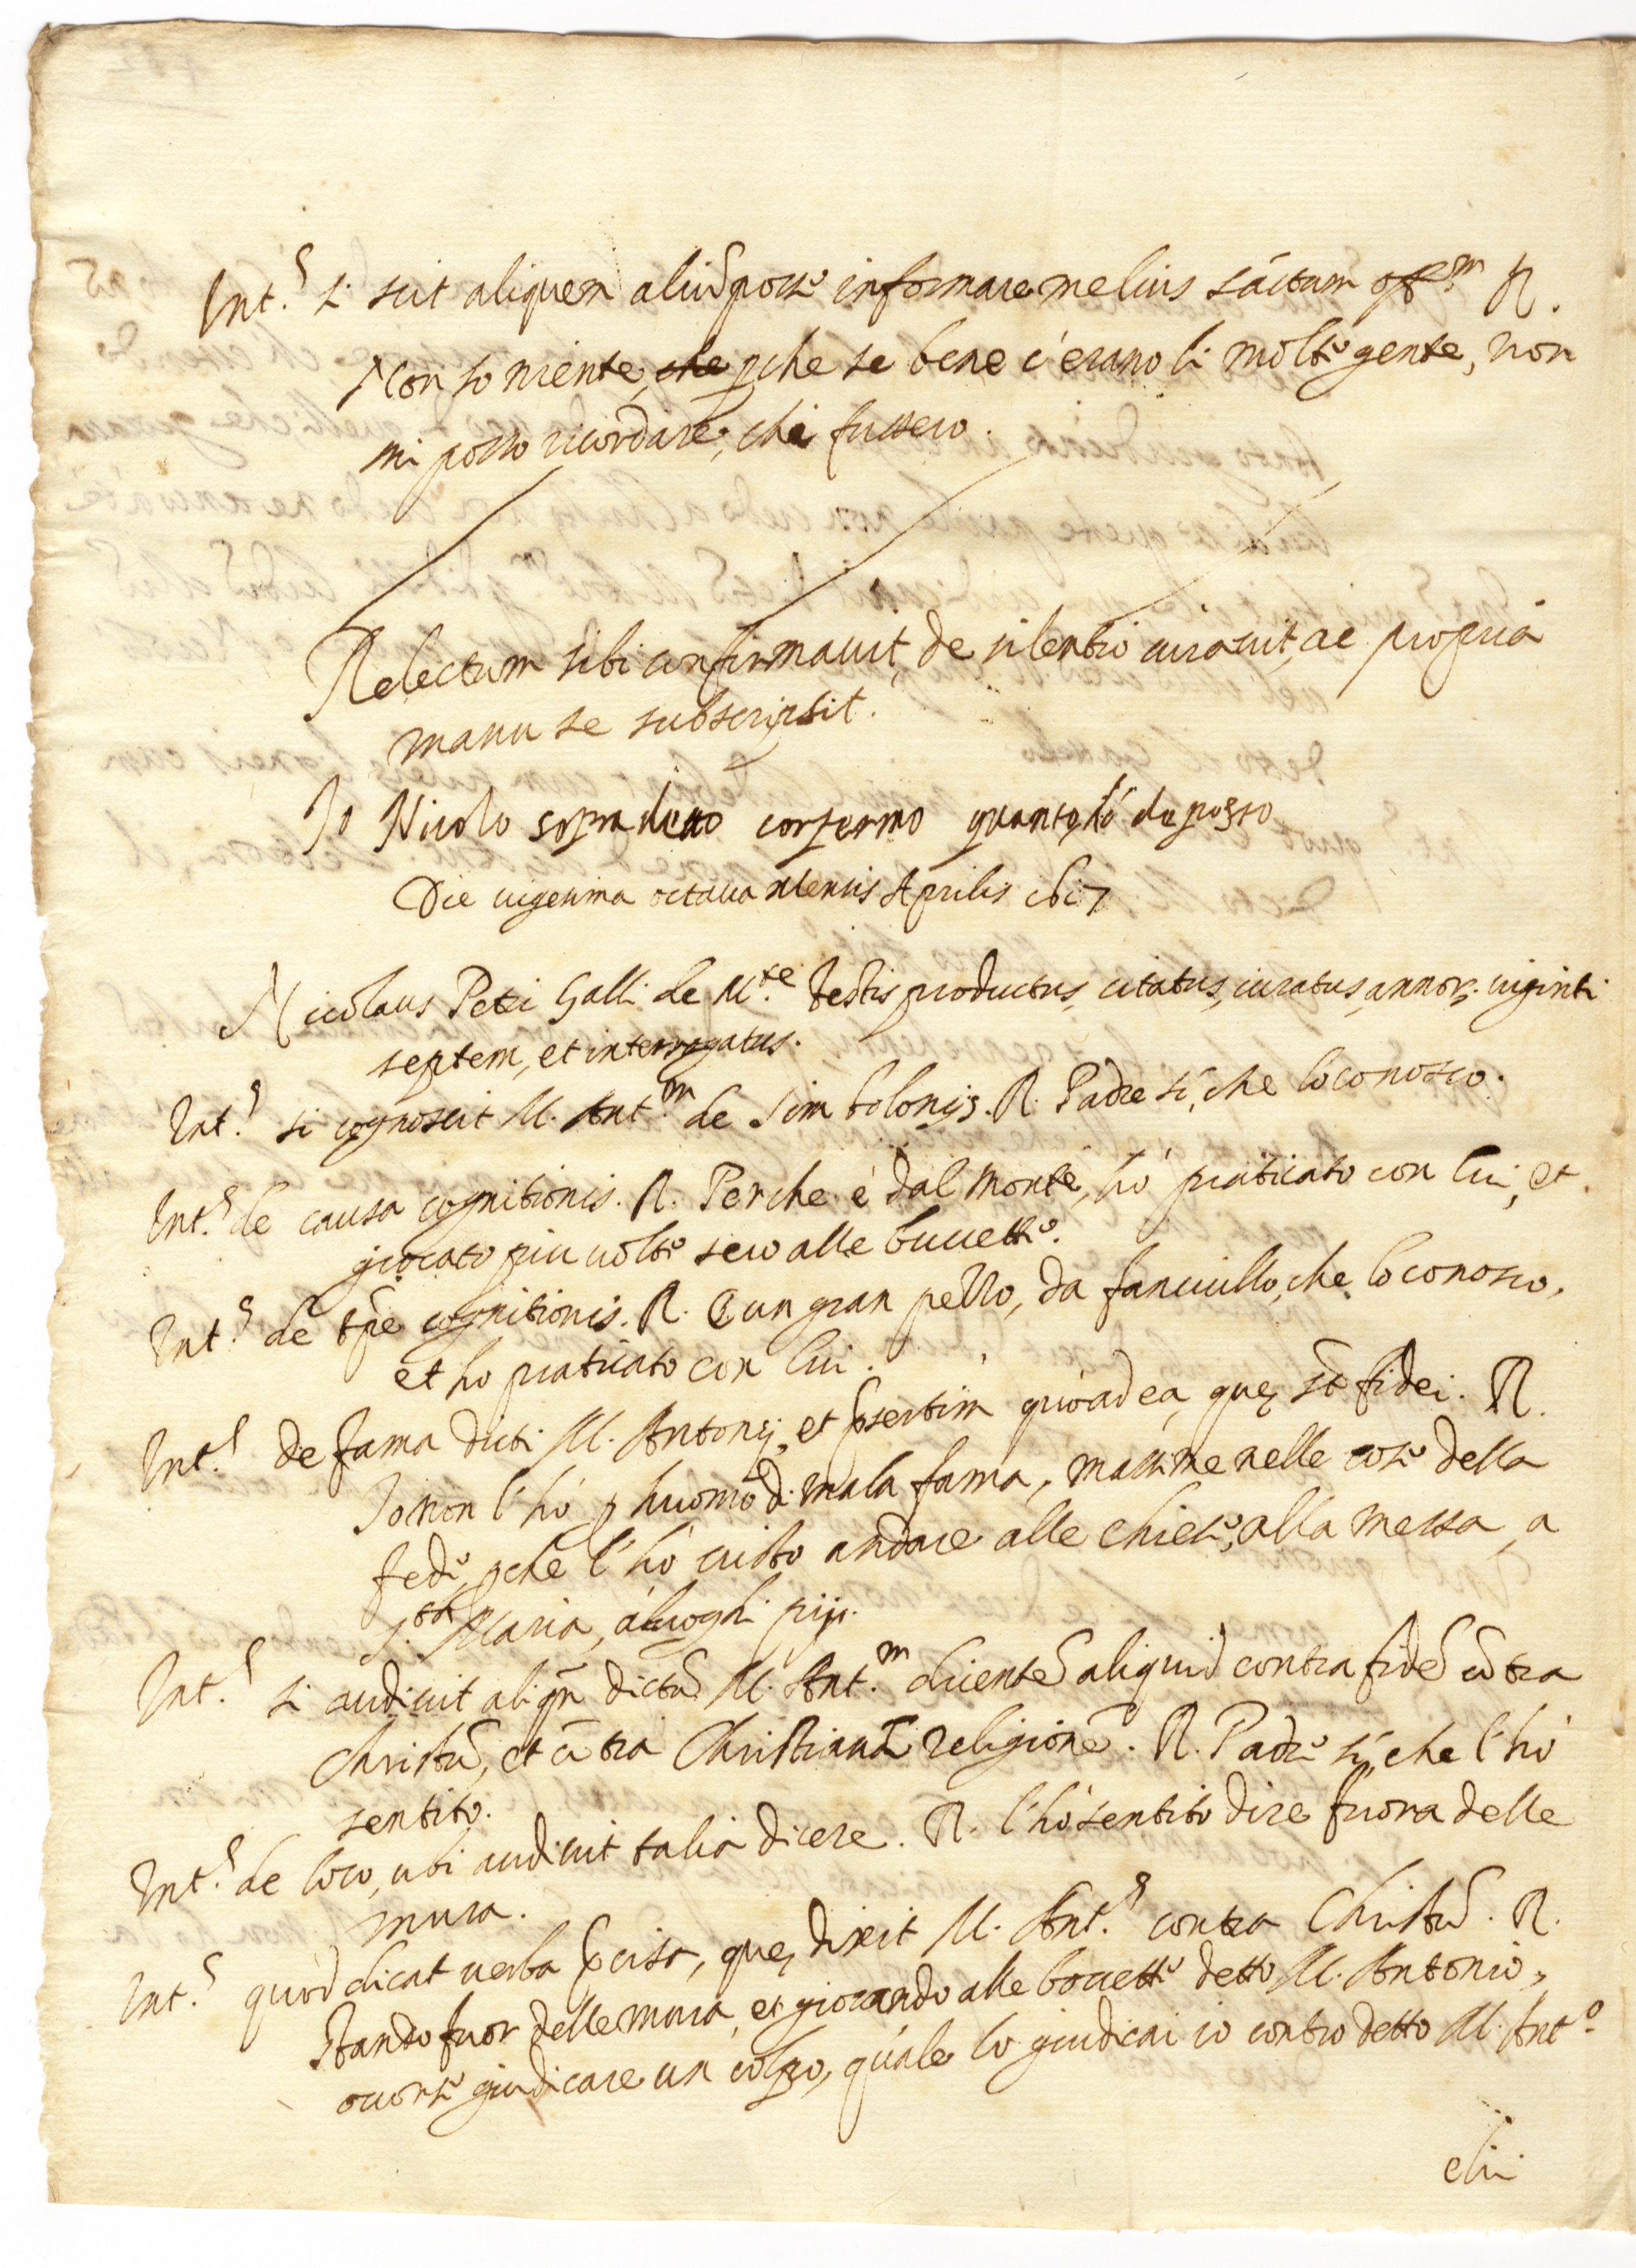 Int.s si scit aliquem aliud posse informare melius sactum offm R.
Non so niente, che pche se bene c'erano li molte gente, non
mi posso ricordare, chi fussero.
Relectum sibi confirmavit, de silentio iuravit, ac propria
manu se subscripsit.
Io Nicolo sopradetto confermo quanto hò deposto
Die vigesima octava Mensis Aprilis
Nicolaus Petri Galli de M.te testis productus, citatus, iuratus, annor. viginti
septem, et interrogatus.
Int.s si cognoscit M. Ant.m de Simbolonijs. R. Padre sì, che lo conosco.
Int.s de causa cognitionis. R. Perche è dal Monte, hò praticato con lui, et
giocato piu volte seco alle buccette.
Int.s de tpe cognitionis. R. È un gran pezzo, da fanciullo, che lo conosco,
et ho praticato con lui.
Int.s de fama dicti M. Antonij, et psertim quoad ea, quę st fidei. R.
Io non l'hò p huomo di mala fama, massime nelle cose della
fede, pche l'hò visto andare alle chiese, alla messa, a
S.ta Maria, à luoghi pij.
Int.s si audivit aliqn dictū M. Ant.m dicentē aliquid contra fidē cōtra
Christū, et cōtra Christianā religionē. R. Padre sì, che l'hò
sentito.
Int.s de loco, ubi audivit talia dicere. R. l'hò sentito dire fuora delle
mura.
Int.s quod dicat verba pcisa, quę dixit M. Ant.s contra Christū. R.
Stando fuor delle mura, et giocando alle boccette detto M. Antonio,
occorse giudicare un colpo, quale lo giudicai io contro detto M. Ant.o
elli